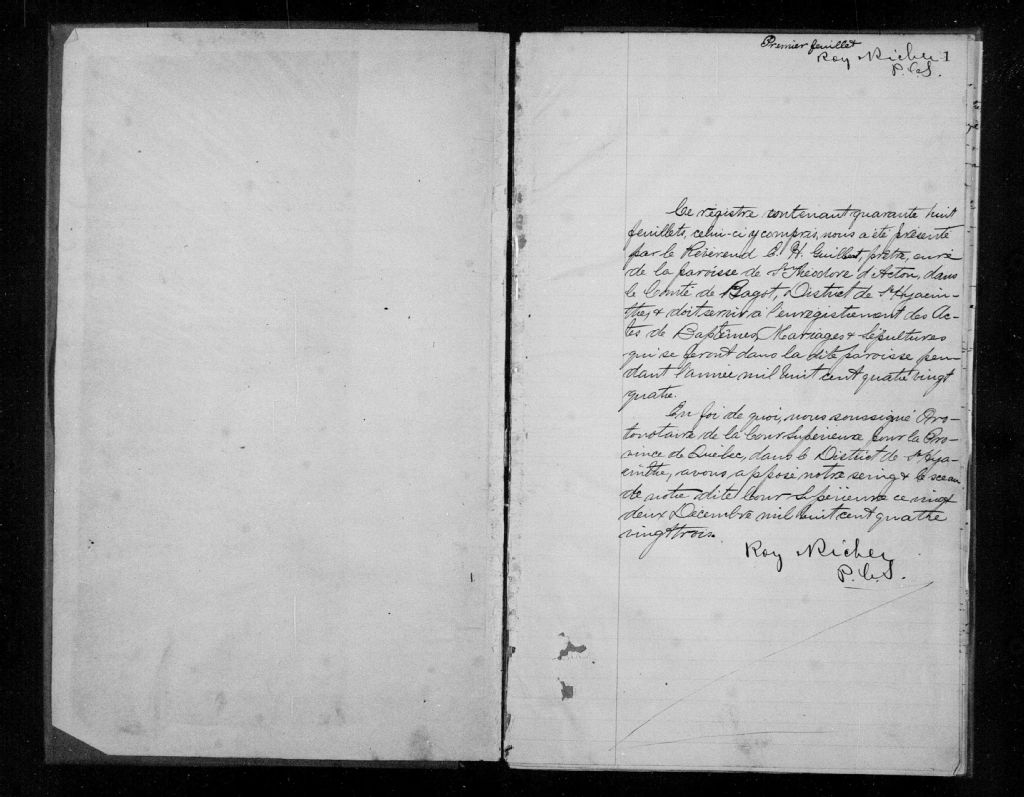 Premier feuillet
Roy Michey 1
P.C.S.
Ce régistre contenant quarante huit
feuillets, celui-ci y compris, nous a été présenté
par le Révérend E. H. Guilbert, prêtre, curé
de la paroisse de St Théodore d'Acton, dans
le Comté de Bagot, District de St Hyacin-
the, & doit servir à l'enregistrement des Ac-
tes de Baptêmes, Mariages & Sépultures
qui se feront dans la dite paroisse pen-
dant l'année mil huit cent quatre vingt
quatre.
En foi de quoi, nous soussigné Pro-
tonotaire de la Cour Supérieure pour la Pro-
vince de Québec, dans le District de St Hya-
cinthe, avons apposé notre seing & le sceau
de notre dite Cour Supérieure ce vingt
deux Décembre mil huit cent quatre
vingt trois.
Roy Michey
P.C.S.